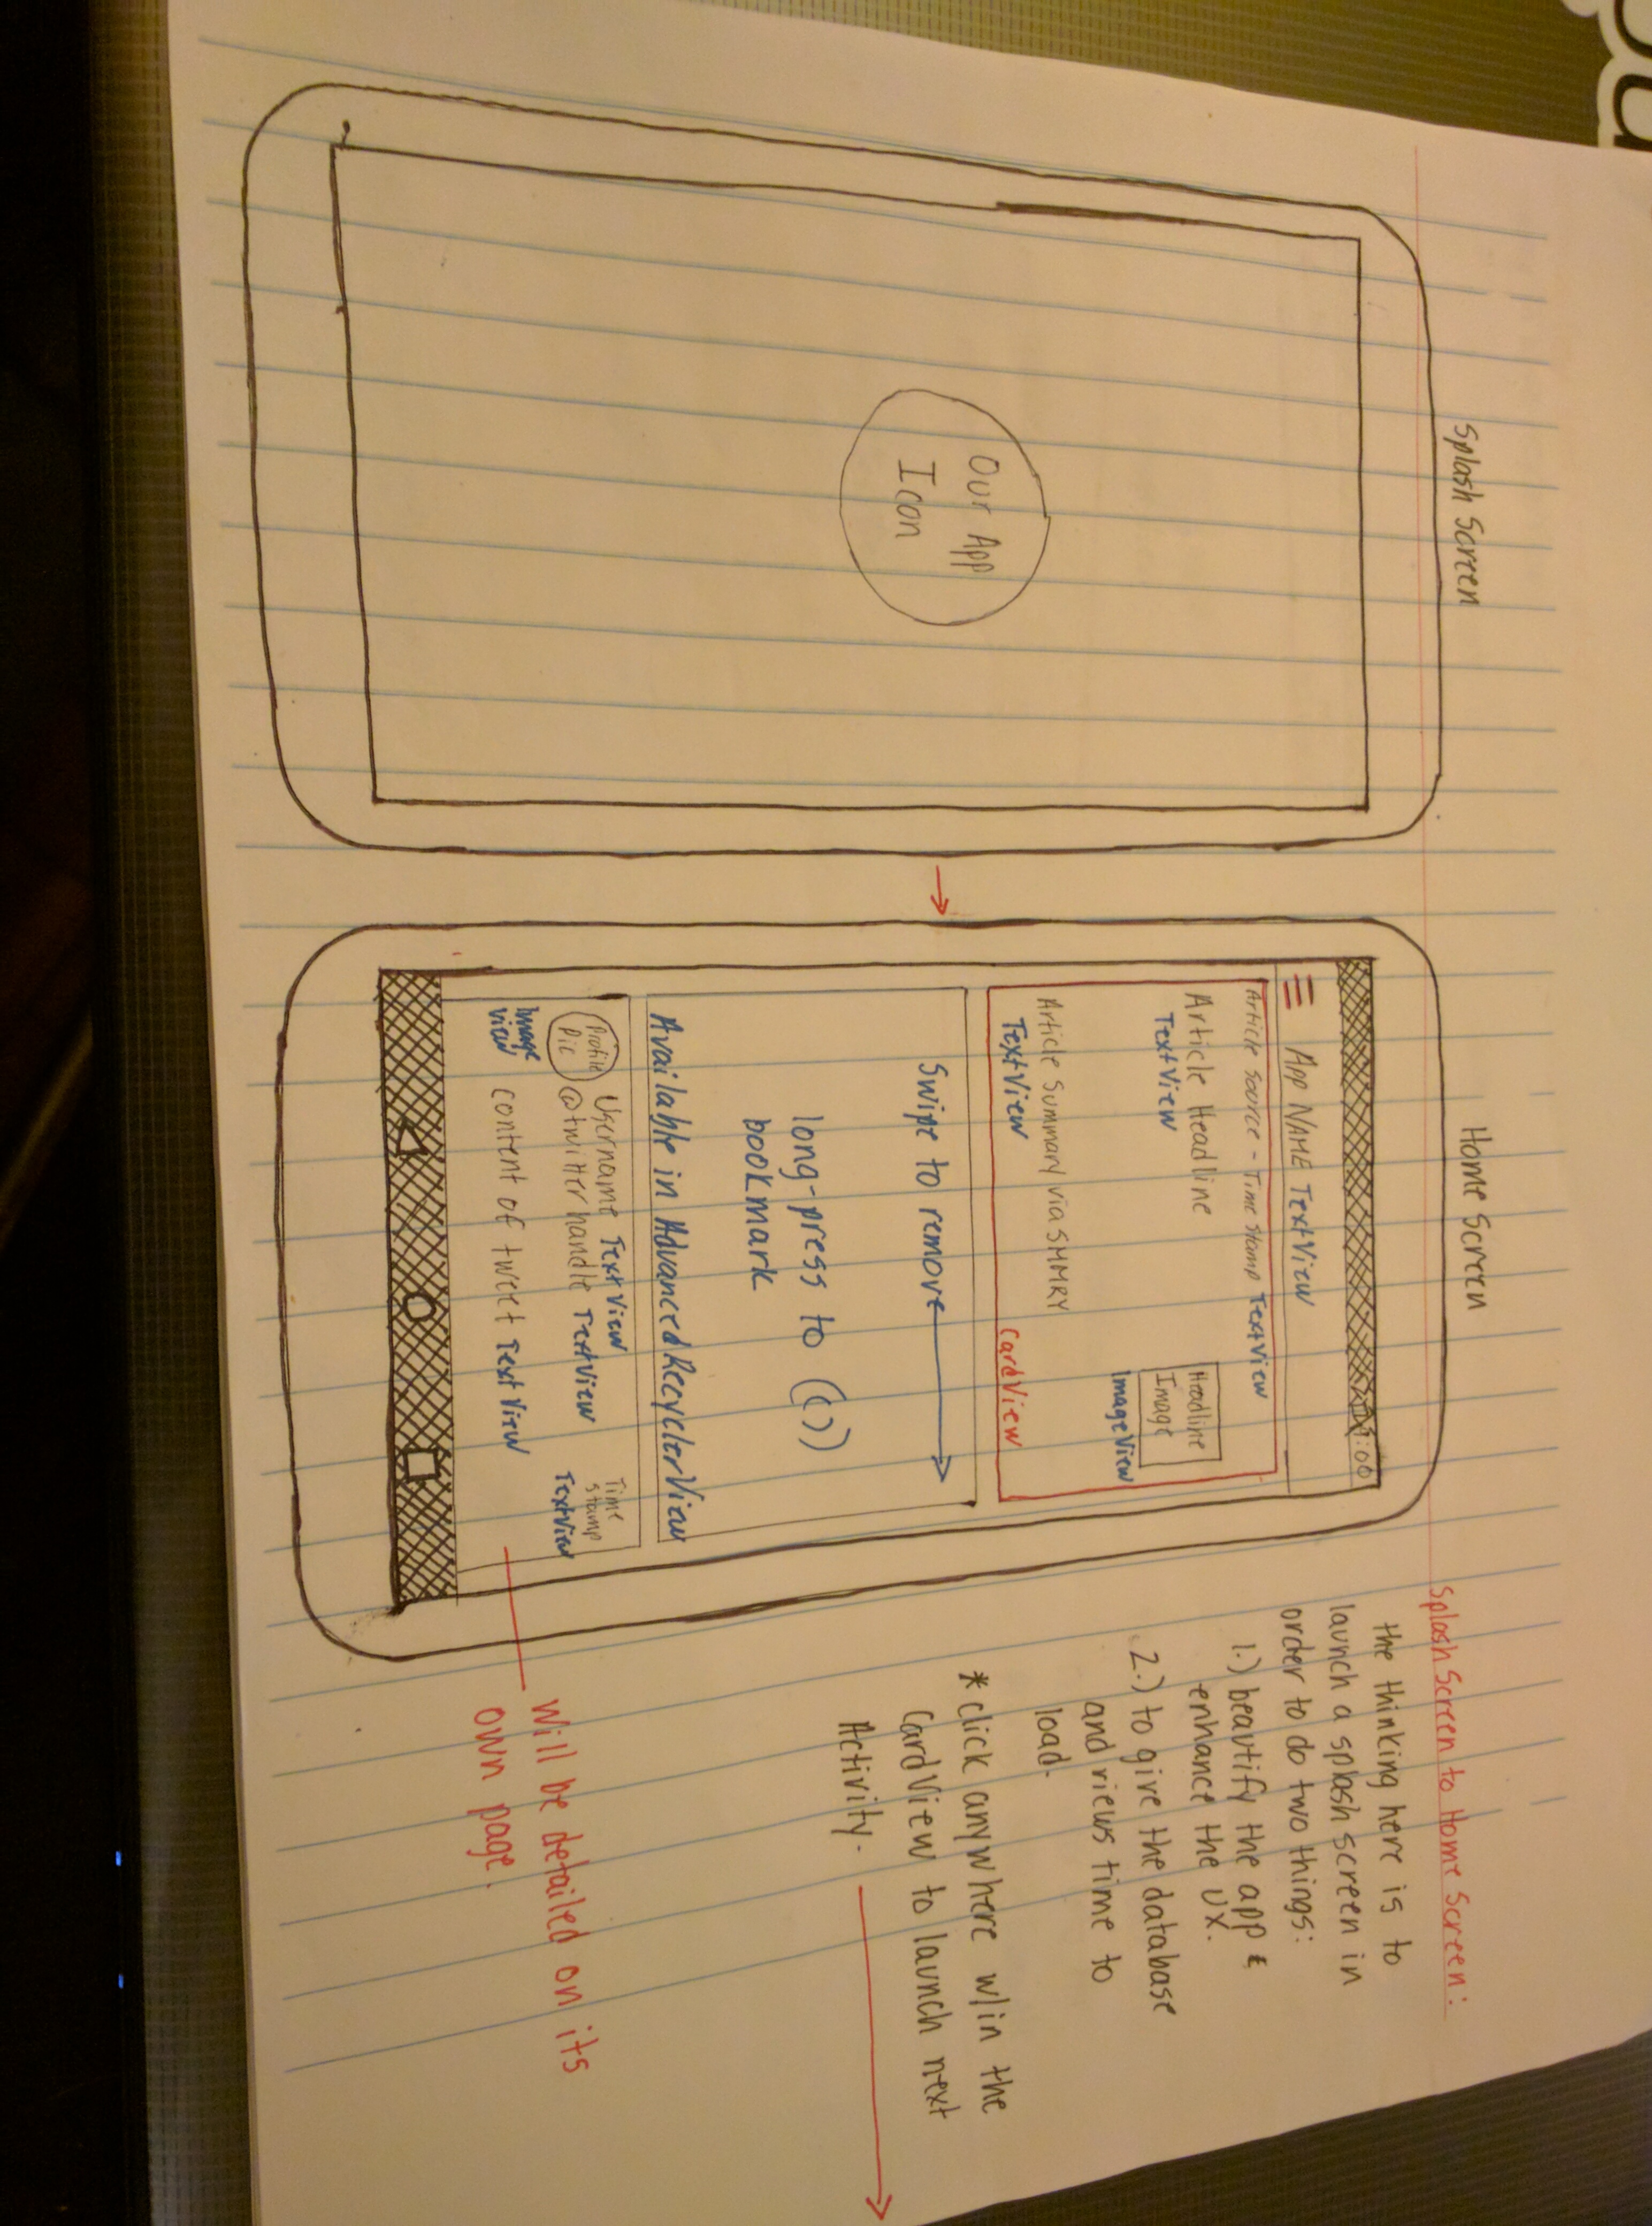 Splash Screen
Our App
Icon
Home Screen
:00
App NAME TextView
Article Source - Time Stamp TextView
Article Headline
TextView
Headline
Image
ImageView
Article Summary via SMMRY
TextView
CardView
Swipe to remove
long-press to
bookmark
Available in AdvancedRecyclerView
Profile
Pic
Image
View
Username TextView
@twitterhandle TextView
content of tweet TextView
Time
stamp
TextView
Splash Screen to Home Screen:
the thinking here is to
launch a splash screen in
order to do two things:
1.) beautify the app &
enhance the UX.
2.) to give the database
and views time to
load.
*click anywhere w/in the
CardView to launch next
Activity.
Will be detailed on its
own page.